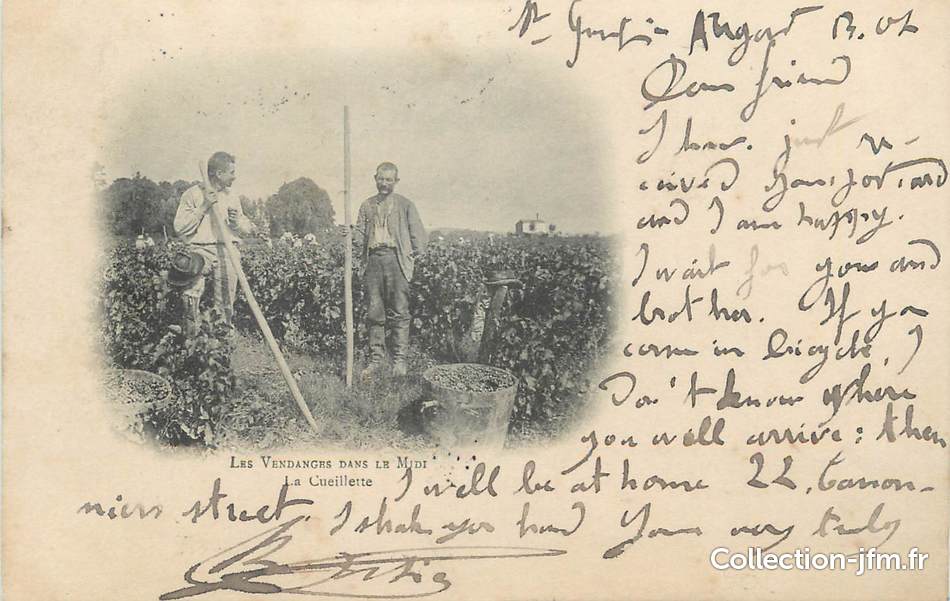 August 13. 02
Dear friend
I have just re-
ceived your postcard
and I am happy.
I wait for you and
brother. If you
come in bicycle, I
Don't know where
you well arrive: then
I well be at home 22, Canon-
niers street. I shak your hand Yours very truly
LES VENDANGES DANS LE MIDI
La Cueillette
Collection-jfm.fr